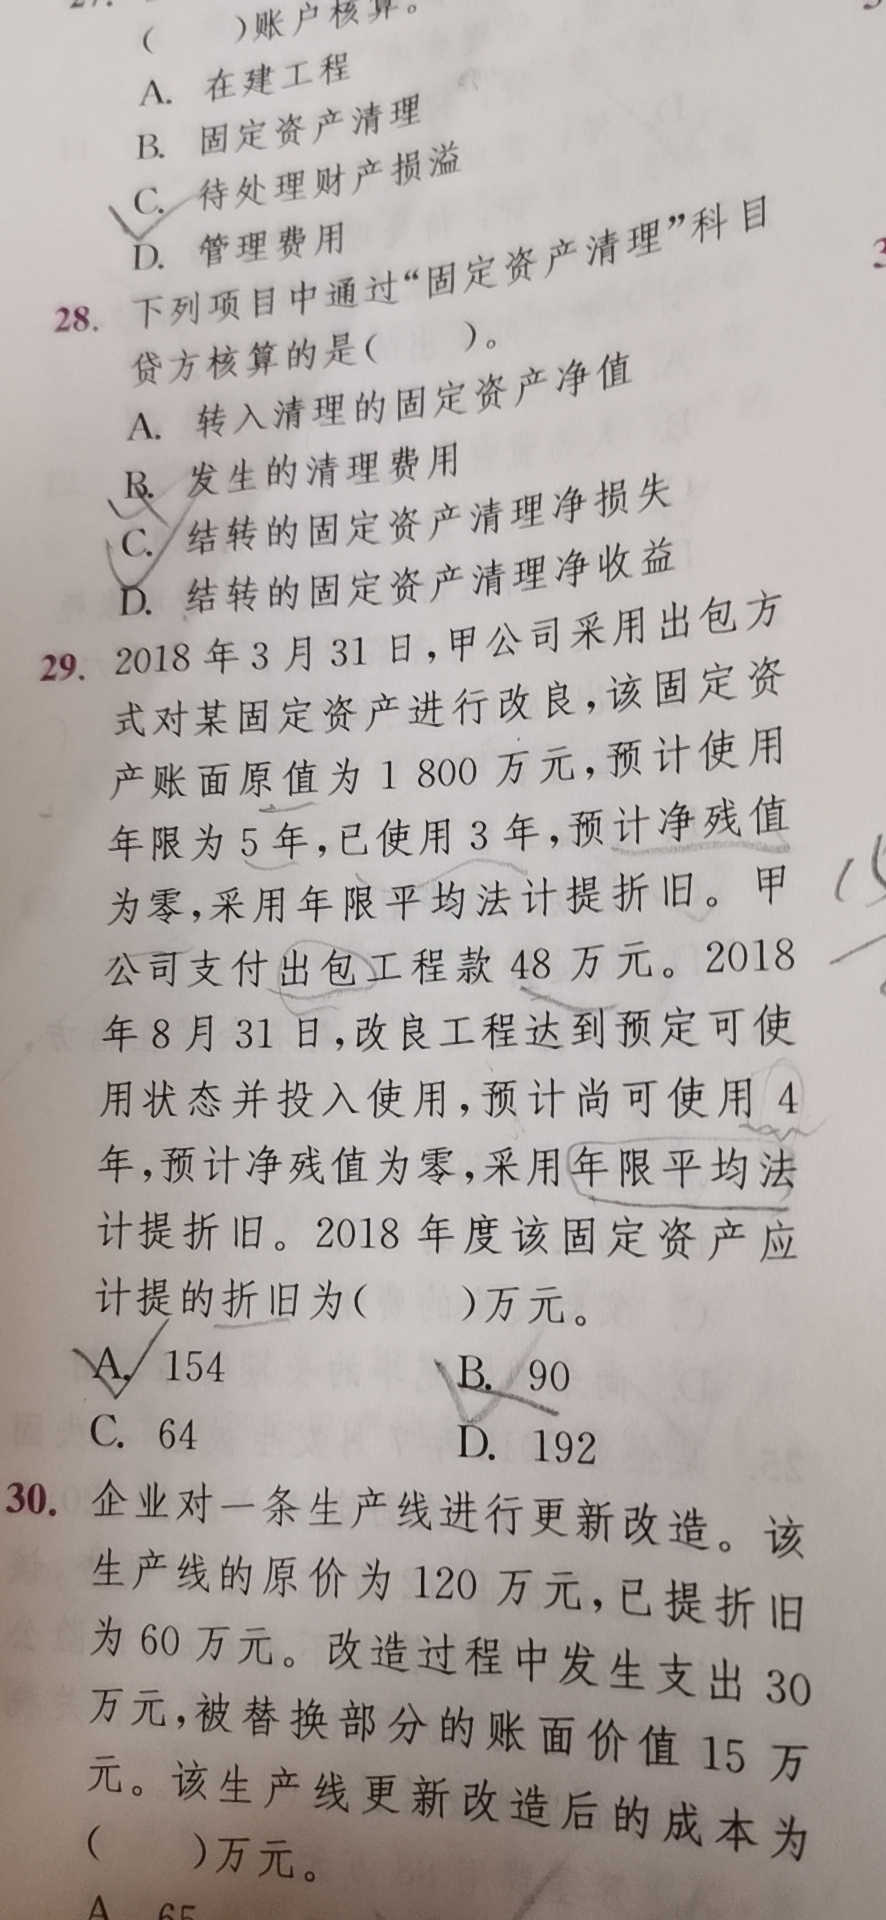 27.
( )账户核算。
A. 在建工程
B. 固定资产清理
C. 待处理财产损溢
D. 管理费用
28. 下列项目中通过“固定资产清理”科目
贷方核算的是( )。
A. 转入清理的固定资产净值
B. 发生的清理费用
C. 结转的固定资产清理净损失
D. 结转的固定资产清理净收益
29. 2018 年 3 月 31 日,甲公司采用出包方
式对某固定资产进行改良,该固定资
产账面原值为 1 800 万元,预计使用
年限为 5 年,已使用 3 年,预计净残值
为零,采用年限平均法计提折旧。甲
公司支付出包工程款 48 万元。2018
年 8 月 31 日,改良工程达到预定可使
用状态并投入使用,预计尚可使用 4
年,预计净残值为零,采用年限平均法
计提折旧。2018 年度该固定资产应
计提的折旧为( )万元。
A. 154 B. 90
C. 64 D. 192
30. 企业对一条生产线进行更新改造。该
生产线的原价为 120 万元,已提折旧
为 60 万元。改造过程中发生支出 30
万元,被替换部分的账面价值 15 万
元。该生产线更新改造后的成本为
( )万元。
A. 65